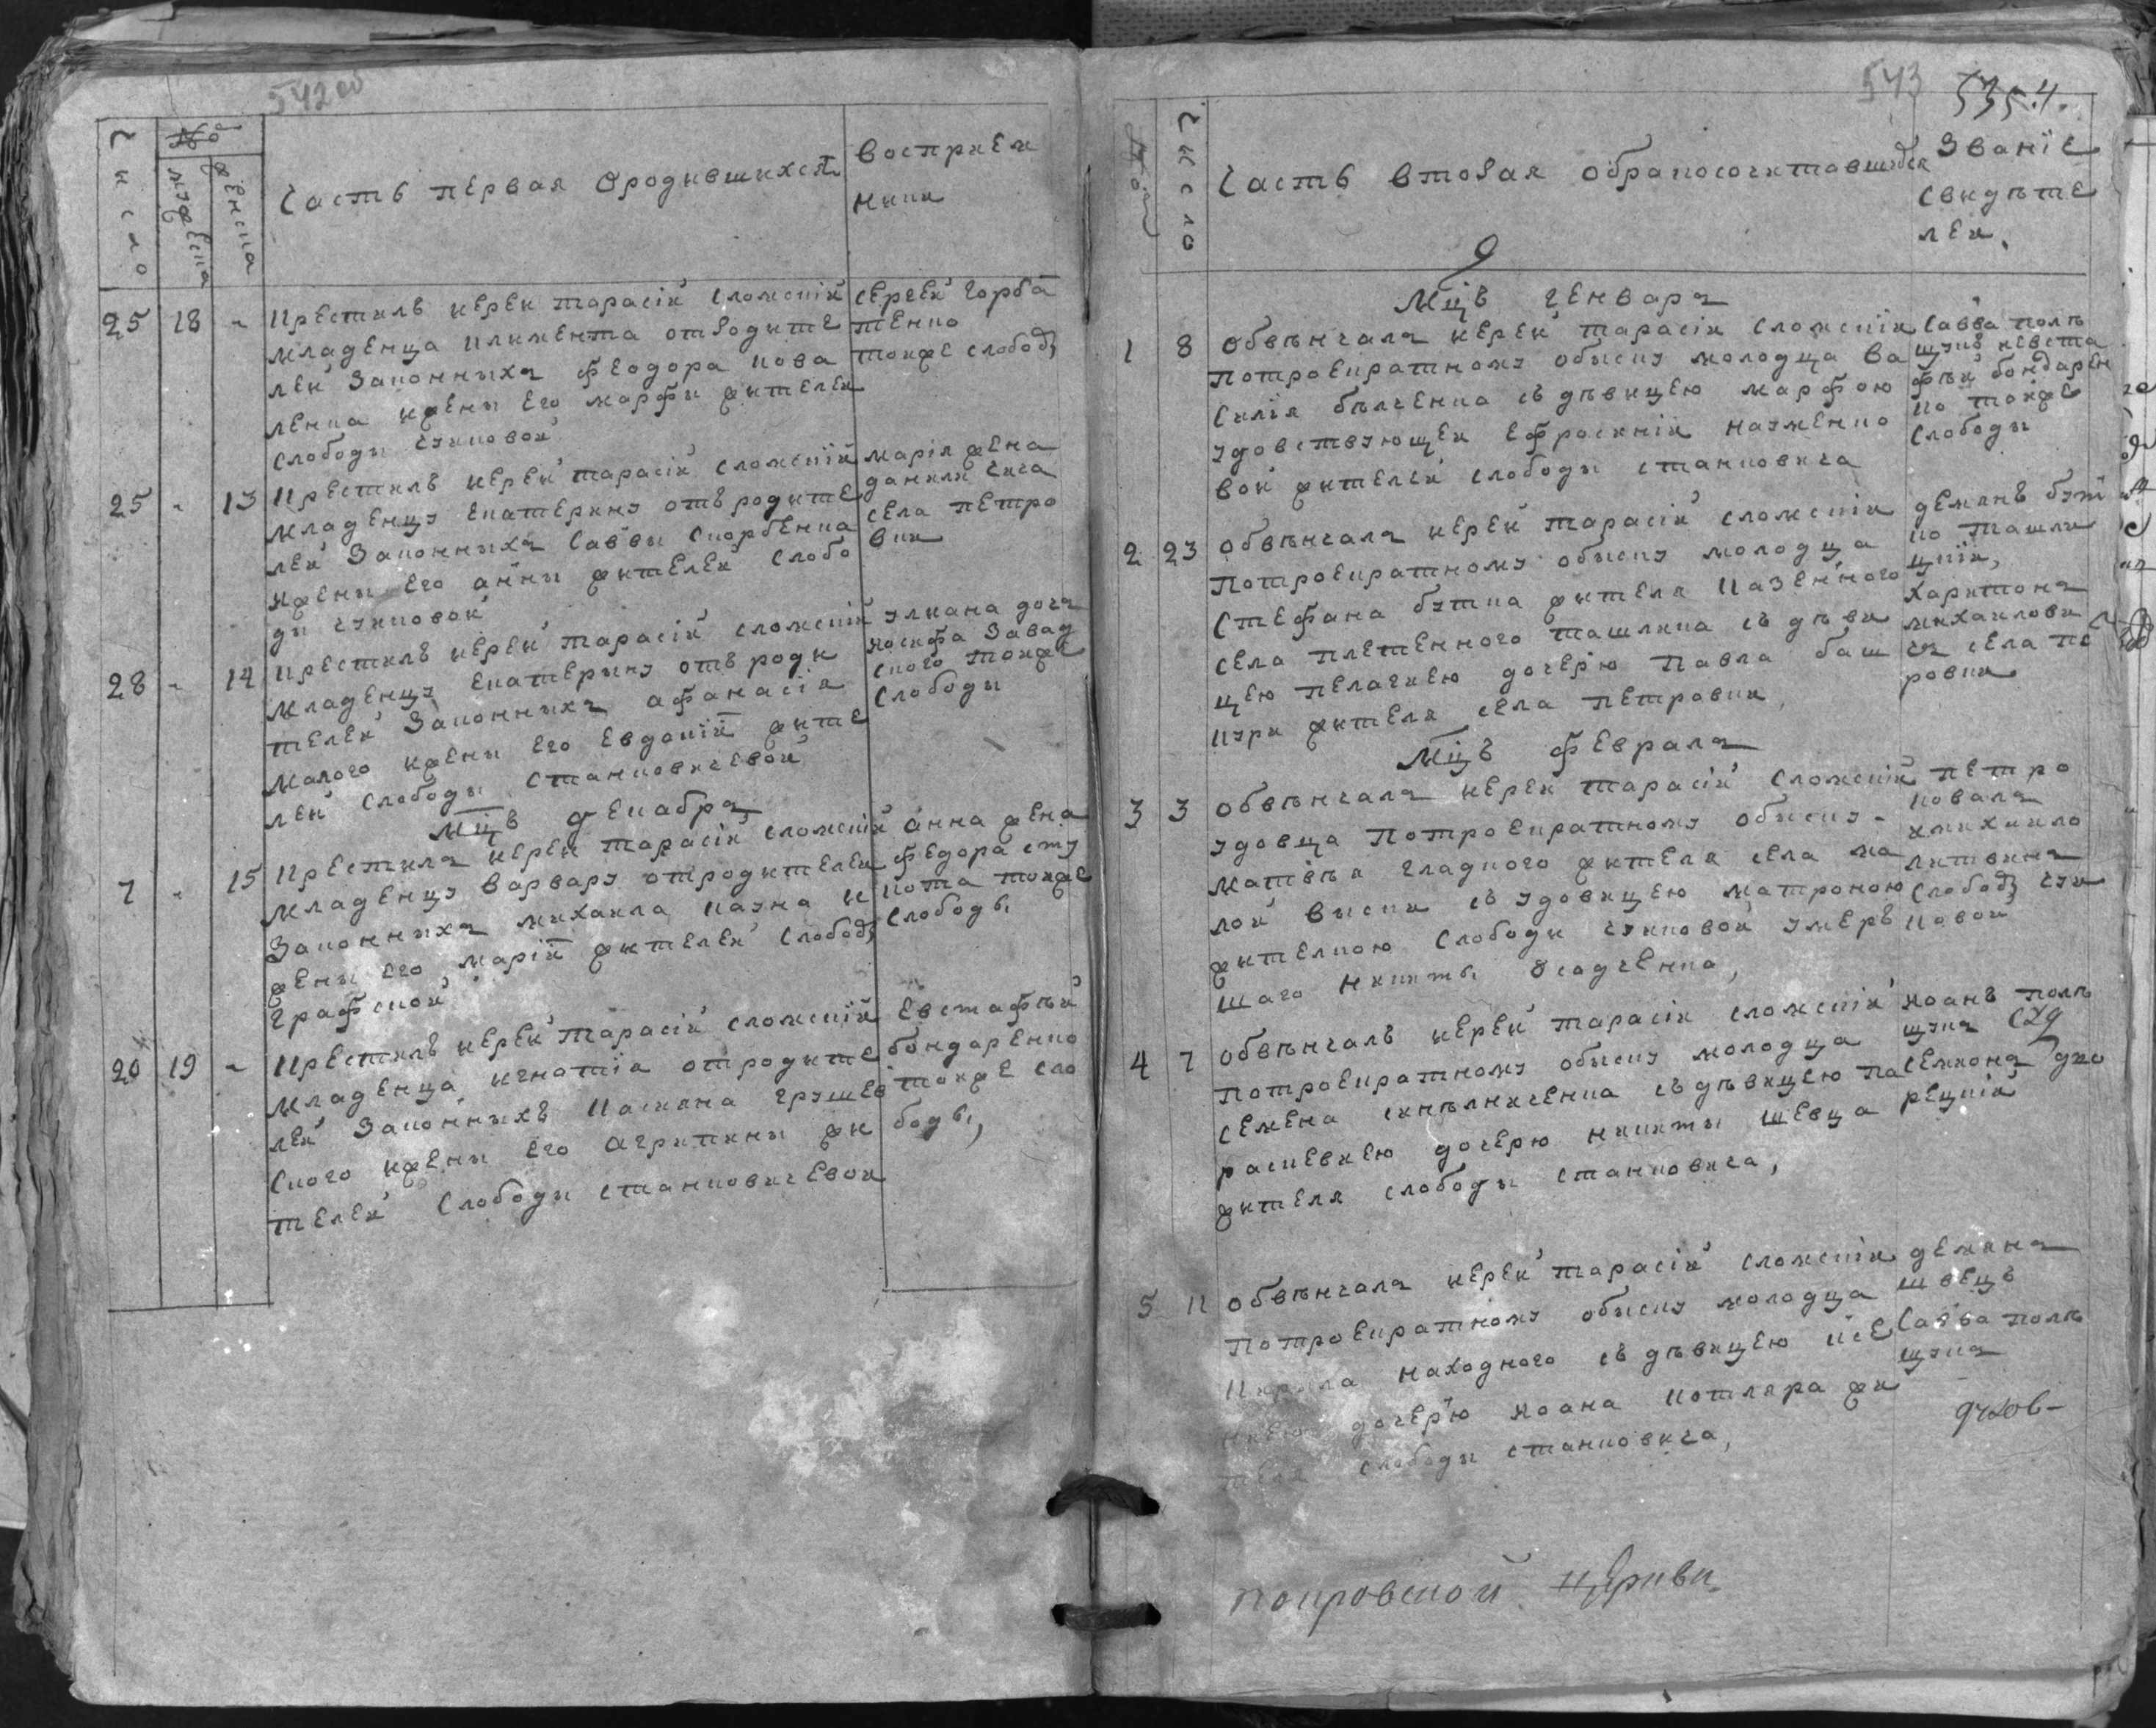 542 об
Число
№
мужеска
женска
Часть первая Ородившихся
восприем
ники
25 18 - Крестилъ иерей тарасий сломский
младенца климента отъ родите
лей законныхъ феодора кова
ленка ижены его марфи жителей
слободы чуиковой
сергей горба
тенко
тоиже слободы
25 - 13 Крестилъ иерей тарасий сломскїй
младенцу екатерину отъ родите
лей законныхъ саввы скорбенка
ижены его анны жителей слобо
ды чуиковой
марія жена
данила чига
села петро
вки
28 - 14 Крестилъ иерей тарасїй сломскїй
младенцу екатерину отъ роди
телей законныхъ афанасїя
малого ижены его евдокїй жите
лей слободы станковичевой
улиана дочь
иосифа завад
ского тоиже
слободы
мцъ декабрь
7 - 15 Крестилъ иерей тарасїй сломскїй
младенцу варвару отродителей
законныхъ михаила кауна и
жены его марїй жителей слободы
графской
анна жена
федора сту
кота тоиже
слободы
20 19 - Крестилъ иерей тарасїй сломскїй
младенца игнатїя отродите
лей законныхъ касияна грушев
ского ижены его агрипини жи
телей слободы станковичевой
евстафѣй
бондаренко
тоиже сло
боды,
543
535.4.
число
Часть вторая обракосочитавшихся
званїе
свидѣте
лей.
Мцъ генварь
1 8 обвѣнчалъ иерей тарасій сломскїй
потроекратному обыску молодца ва
силїя бѣлченка съ дѣвицею марфою
удовствующей ефросинїй науменко
вой жителей слободы станковича
савва полѣ
щукъ иевста
фѣй бондарен
ко тоиже
слободы
2 23 обвѣнчалъ иерей тарасїй сломскїй
потроекратному обыску молодца
стефана бутка жителя казенного
села плетенного ташлика съ дѣви
цею пелагиею дочерїю павла баш
кури жителя села петровки,
демянъ бут
ко ташли
цкїй,
харитонъ
михаилови
чъ села пе
ровки
Мцъ февраль
3 3 обвѣнчалъ иерей тарасїй сломскїй
удовца потроекратному обыску -
матвѣя гладкого жителя села ма
лой виски съ удовицею матроною
жителкою слободы чуиковой умер
шаго никиты осадченка,
петро
коваль
имихаило
литвинъ
слободы чуи
ковой
4 7 обвѣнчалъ иерей тарасїй сломскїй
потроекратному обыску молодца
семена синѣлниченка съ дѣвицею па
раскевиею дочерю никиты шевца
жителя слободы станковича,
иоанъ полѣ
щукъ
семионъ
рецкїй
5 11 обвѣнчалъ иерей тарасїй сломскїй
потроекратному обыску молодца
кирила находного съ дѣвицею ксе
ниею дочерїю иоана котляра жи
теля слободы станковича,
демянъ
швецъ
савва полѣ
щукъ
духов-
покровской церкви